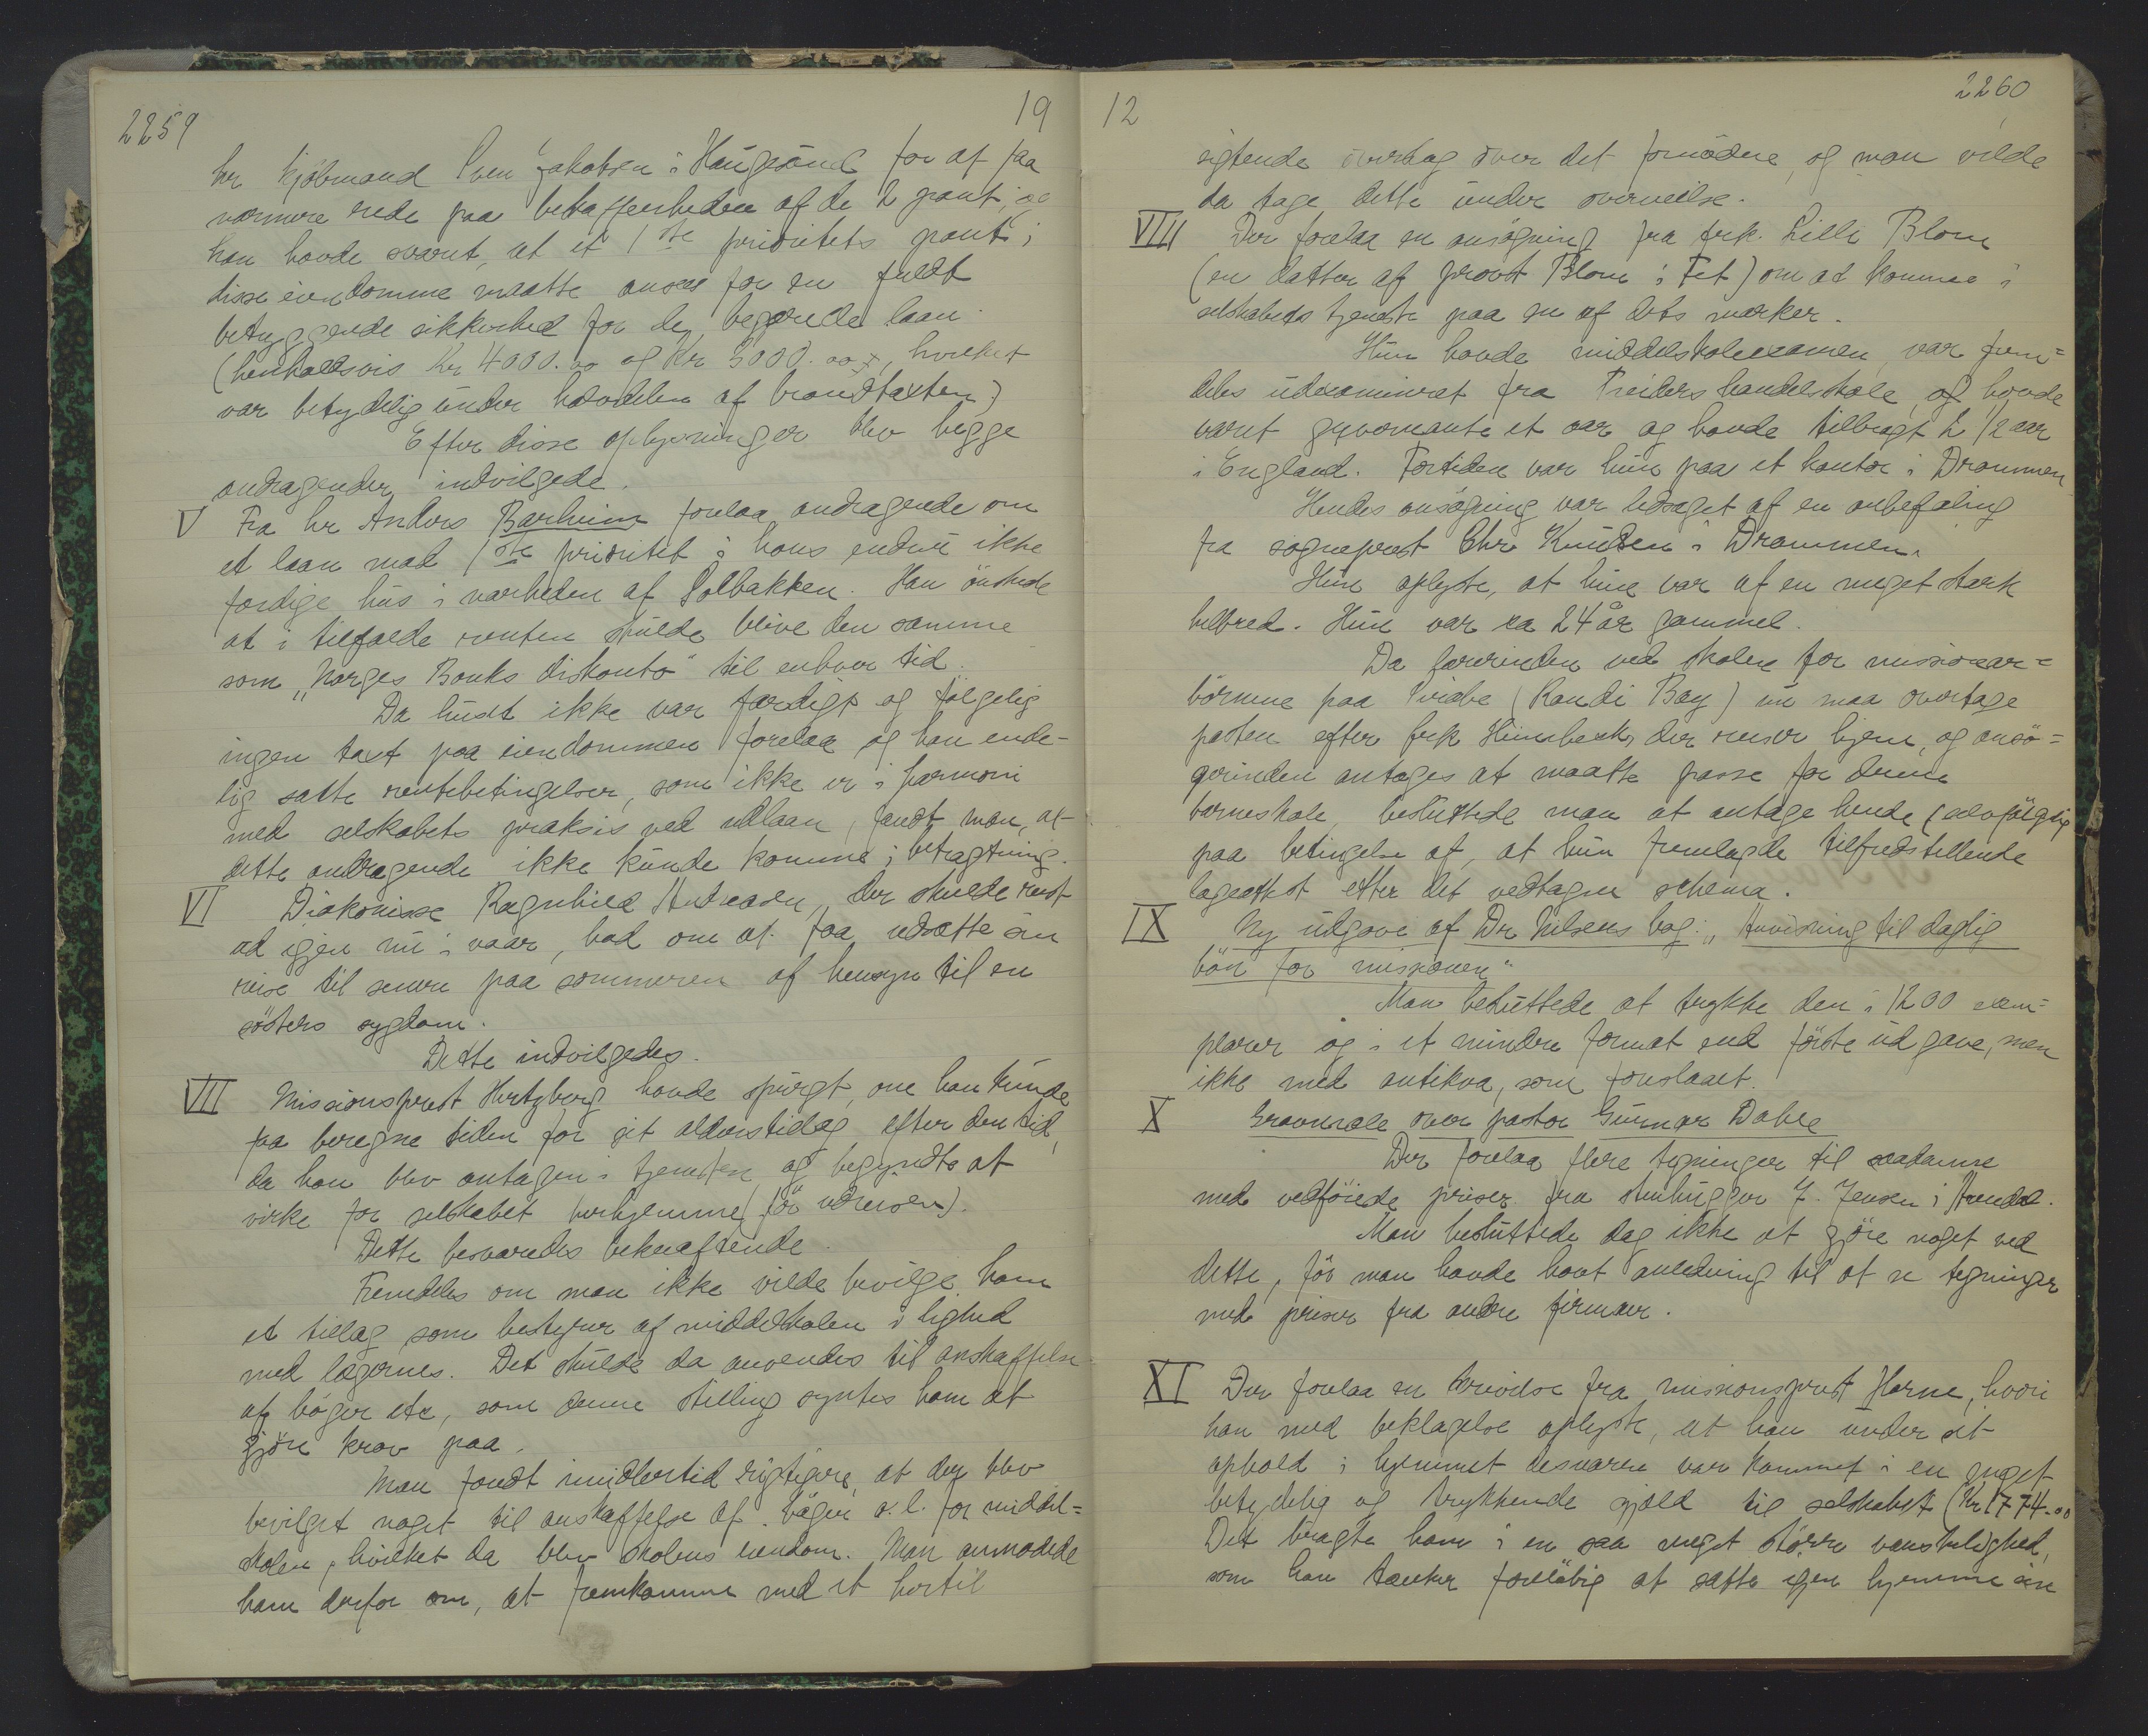 2259
19
hr kjöbmand Sven Jakobsen i Haugesund for at faa
nærmere rede paa beskaffenheden af de 2 pant, og
han havde svaret, at et 1ste prioritets pant i
disse eiendomme maatte ansees for en fuldt
betryggende sikkerhed for de begjærede laan
(henholdsvis Kr 4000.00 og Kr 5000.00, hvilket
var betydelig under halvdelen af brandtaxten.)
Efter disse oplysninger blev begge
andragender indvilgede.
V Fra hr Anders Barheim forelaa andragende om
et laan mod 1ste prioritet i hans endnu ikke
færdige hus i nærheden af Solbakken. Han önskede
at i tilfælde renten skulde blive den samme
som "Norges Banks diskonto" til enhver tid.
Da huset ikke var færdigt og fölgelig
ingen taxt paa eiendommen forelaa og han ende-
lig satte rentebetingelser, som ikke er i harmoni
med selskabets praksis ved udlaan, fandt man, at
dette andragende ikke kunde komme i betragtning.
VI Diakonisse Ragnhild Andreasen, der skulde reist
ud igjen nu i vaar, bad om at faa udsætte sin
reise til senere paa sommeren af hensyn til en
sösters sygdom.
Dette indvilgedes.
VII Missionsprest Hertzberg havde spurgt, om han kunde
faa beregne tiden for sit alderstillæg efter den tid,
da han blev antagen i tjenesten og begyndte at
virke for selskabet herhjemme (för udreisen).
Dette besvaredes bekræftende.
Fremdeles om man ikke vilde bevilge ham
et tillæg som bestyrer af middelskolen i lighed
med lægernes. Det skulde da anvendes til anskaffelse
af böger etc, som denne stilling syntes ham at
gjöre krav paa.
Man fandt imidlertid rigtigere, at der blev
bevilget noget til anskaffelse af böger o.l. for middel=
skolen, hvilket da blev skolens eiendom. Man anmodede
ham derfor om, at fremkomme med et hertil
12
2260
sigtende overslag over det fornödne, og man vilde
da tage dette under overveielse.
VIII Der forelaa en ansögning fra frk. Lilli Blom
(en datter af provst Blom i Fet) om at komme i
selskabets tjeneste paa en af dets marker.
Hun havde middelskoleexamen, var frem=
deles udexamineret fra Treiders handelsskole, og havde
været guvernante et aar og havde tilbragt 2 1/2 aar
i England. Fortiden var hun paa et kontor i Drammen
Hendes ansögning var ledsaget af en anbefaling
fra sogneprest Chr Knudsen i Drammen.
Hun oplyste, at hun var af en meget stærk
helbred. Hun var ca 24 år gammel.
Da lærerinden ved skolen for missionær=
börnene paa (Randi Bay) nu maa overtage
posten efter frk der reiser hjem, og ansö=
gerinden antages at maatte passe for denne
barneskole, besluttede man at antage hende (selvfölgelig
paa betingelse af, at hun fremlagde tilfredstillende
lægeattest efter det vedtagne schema.
IX Ny udgave af Dr Nilsens bog: "Anvisning til daglig
bön for missionen"
Man besluttede at trykke den i 1200 exem=
plarer og i et mindre format end förste udgave, men
ikke med antikva, som foreslaaet.
X Gravmæle over pastor Gunnar Dahle
Der forelaa flere tegninger til saadanne
med vedföiede priser fra stenhugger J. Jensen i Arendal.
Man besluttede dog ikke at gjöre noget ved
dette, för man havde havt anledning til at se tegninger
med priser fra andre firmaer.
XI Der forelaa en skrivelse fra missionsprest Horne, hvori
han med beklagelse oplyste, at han under sit
ophold i hjemmet desværre var kommet i en meget
betydelig og trykkende gjæld til selskabet (Kr 1774.00
Det bragte ham i en saa meget större vanskelighed,
som han tænker foreløbig at sætte igjen hjemme sin